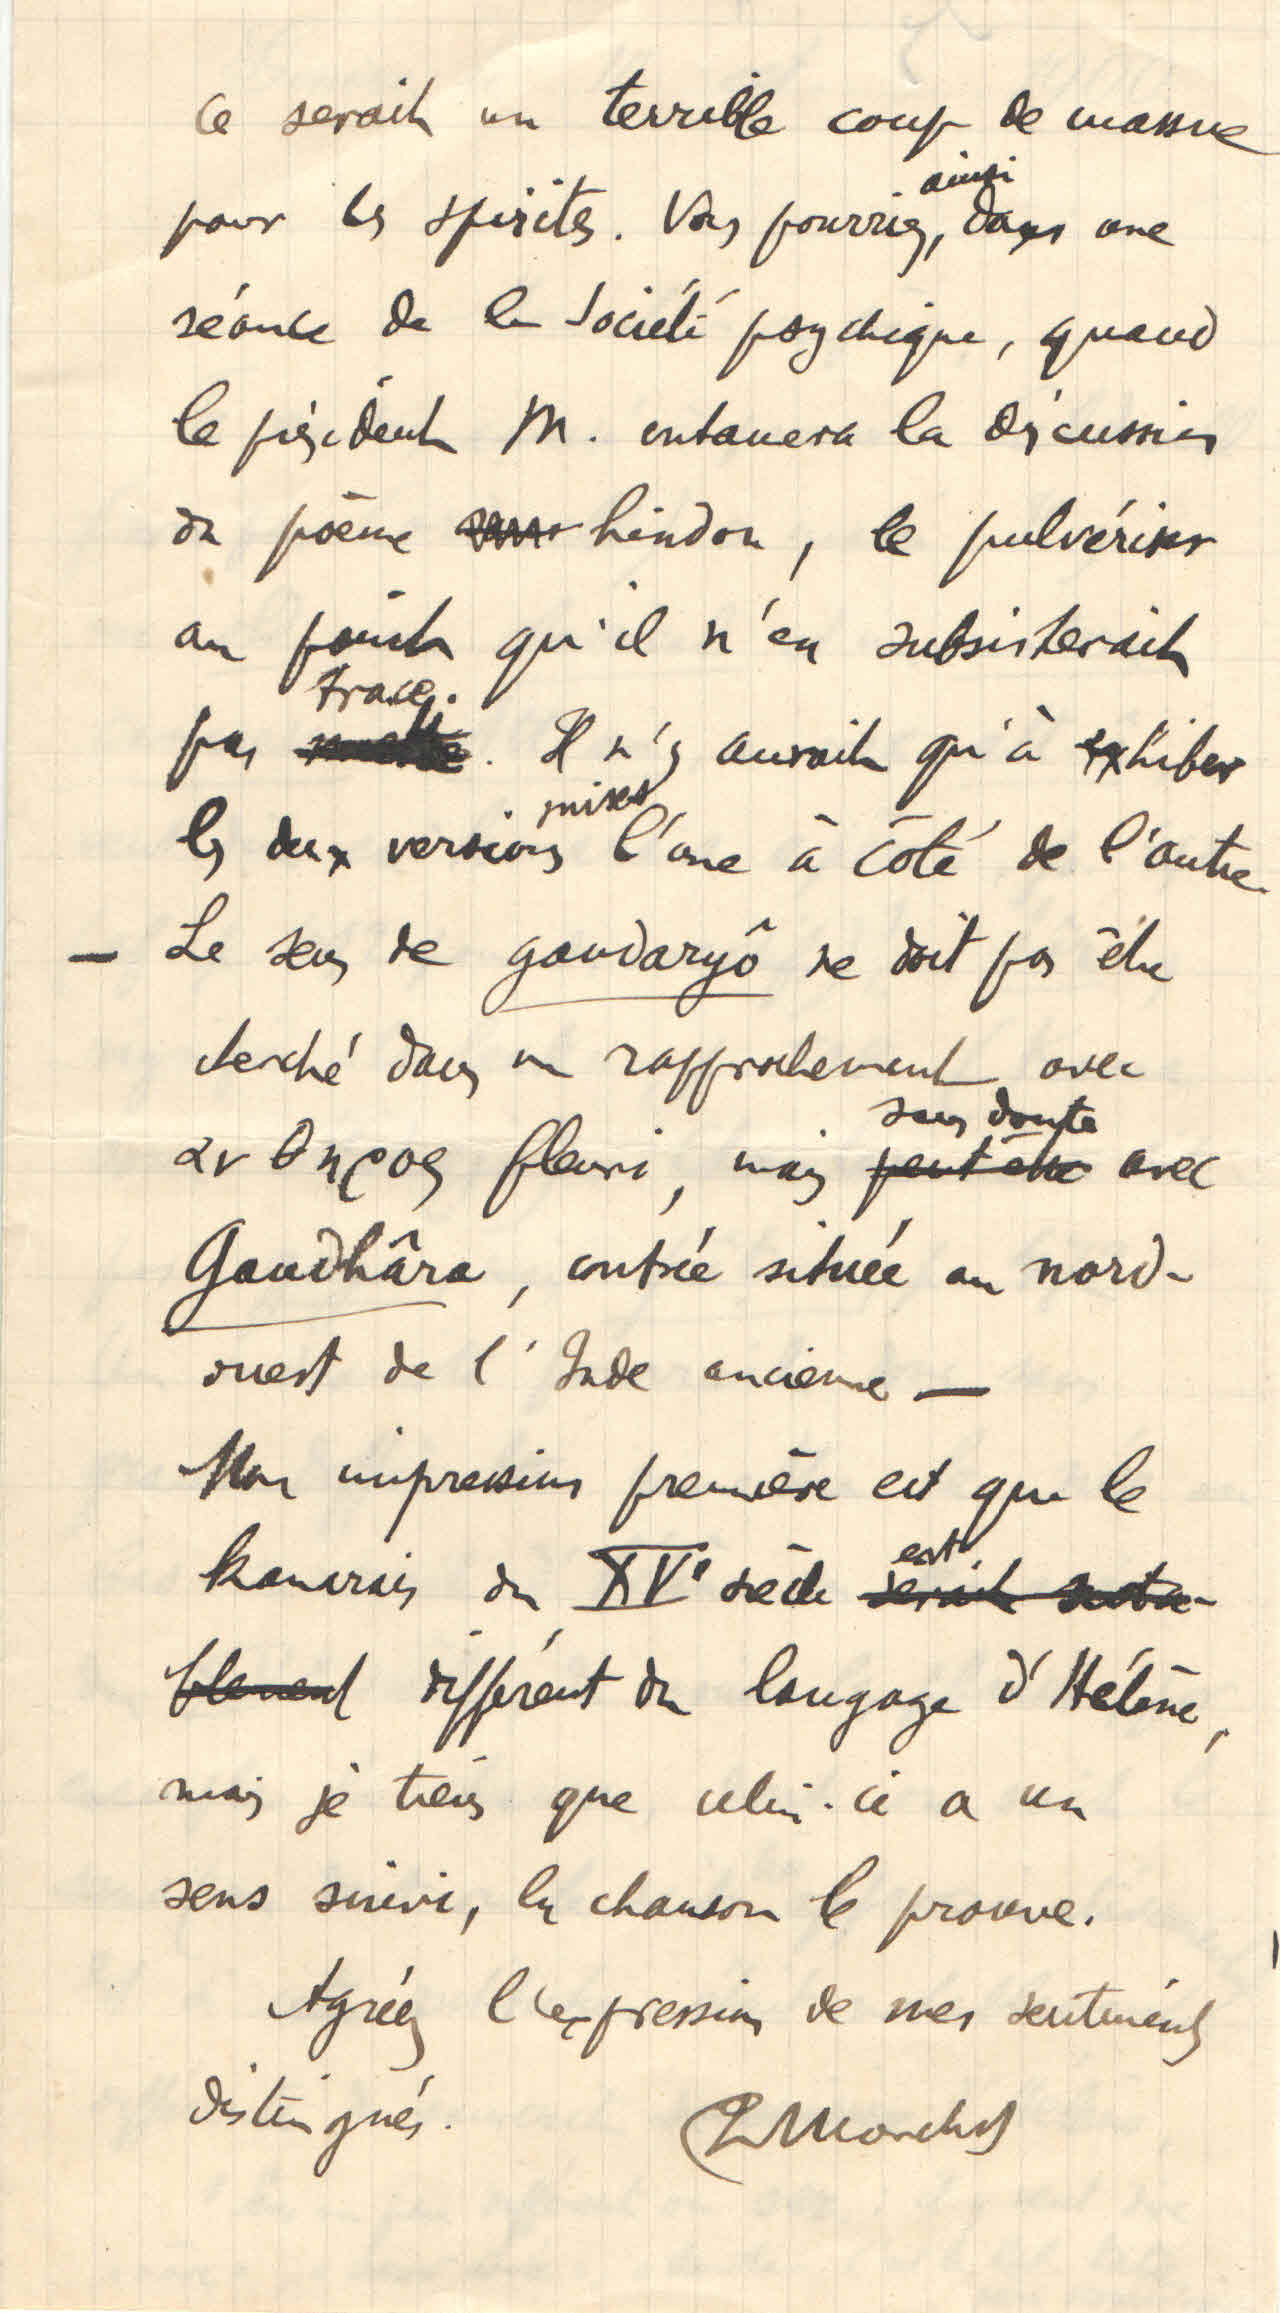 Ce serait un terrible coup de massue
pour les spirites. Vous pourriez, ainsi dans une
séance de la Société psychique, quand
le président M. entamera la discussion
du poème hindou, le pulvériser
au point qu'il n'en subsisterait
pas trace. Il n'y aurait qu'à exhiber
les deux versions mises l'une à côté de l'autre.
— Le sens de gandaryô ne doit pas être
cherché dans un rapprochement avec
ανθηρος fleuri, mais peut être sans doute avec
Gandhâra, contrée située au nord-
ouest de l'Inde ancienne —
Mon impression première est que le
kanarais du XVe siècle serait nota- est
blement différent du langage d'Hélène,
mais je tiens que celui-ci a un
sens suivi, la chanson le prouve.
Agréez l'expression de mes sentiments
distingués.